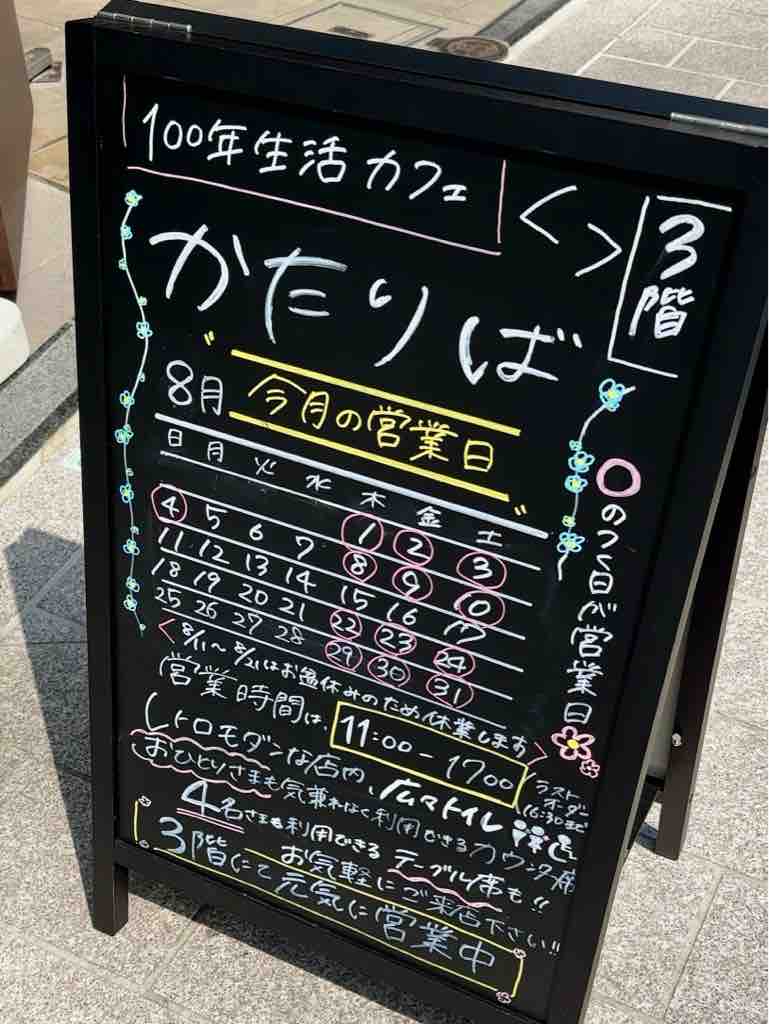 100年生活カフェ
かたりば
3階
8月 今月の営業日
日 月 火 水 木 金 土
1 2 3
4 5 6 7 8 9 10
11 12 13 14 15 16 17
18 19 20 21 22 23 24
25 26 27 28 29 30 31
〇のつく日が営業日
<8/11〜8/21はお盆休みのため休業します>
営業時間は、11:00-1700
ラストオーダー16:30まで
レトロモダンな店内、広々トイレ
おひとりさまも気兼ねなく利用できるカウンター席
4名さまも利用できるテーブル席も!!
お気軽にご来店下さい!!
3階にて元気に営業中